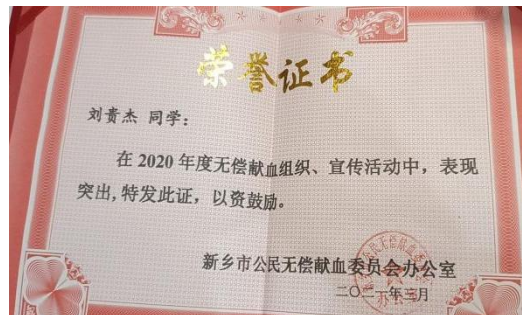 荣誉证书
刘贵杰 同学：
在 2020 年度无偿献血组织、宣传活动中，表现
突出,特发此证，以资鼓励。
新乡市公民无偿献血委员会办公室
二〇二一年三月